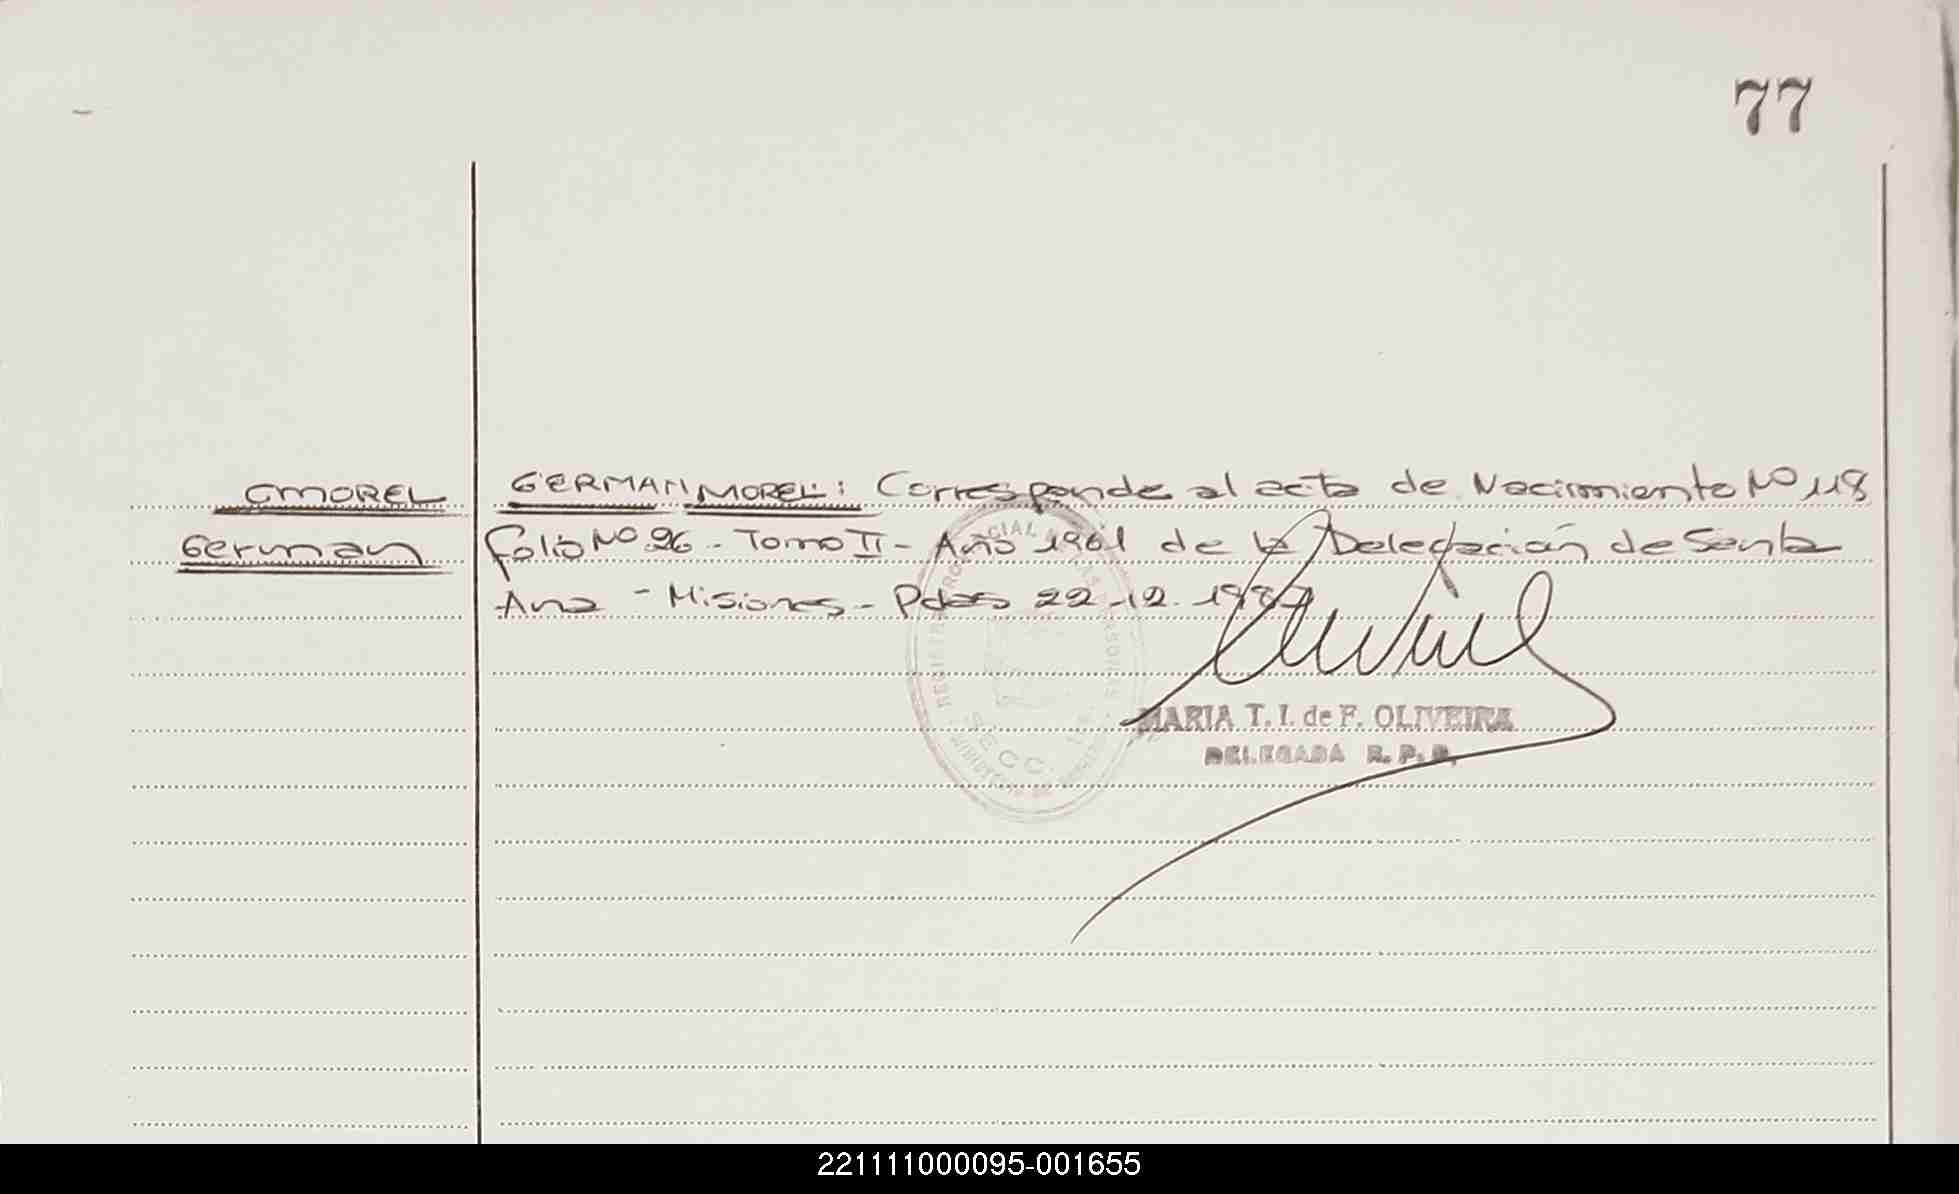 77
GMOREL
German
GERMAN MOREL: Corresponde al acta de Nacimiento Nº 118
folio Nº 96 - Tomo II - Año 1961 de la Delegación de Santa
Ana - Misiones - Pdas 22-12-1987
REGISTRO PROVINCIAL DE LAS PERSONAS
SECC.
MARIA T. I. de F. OLIVEIRA
DELEGADA R. P. P.
221111000095-001655